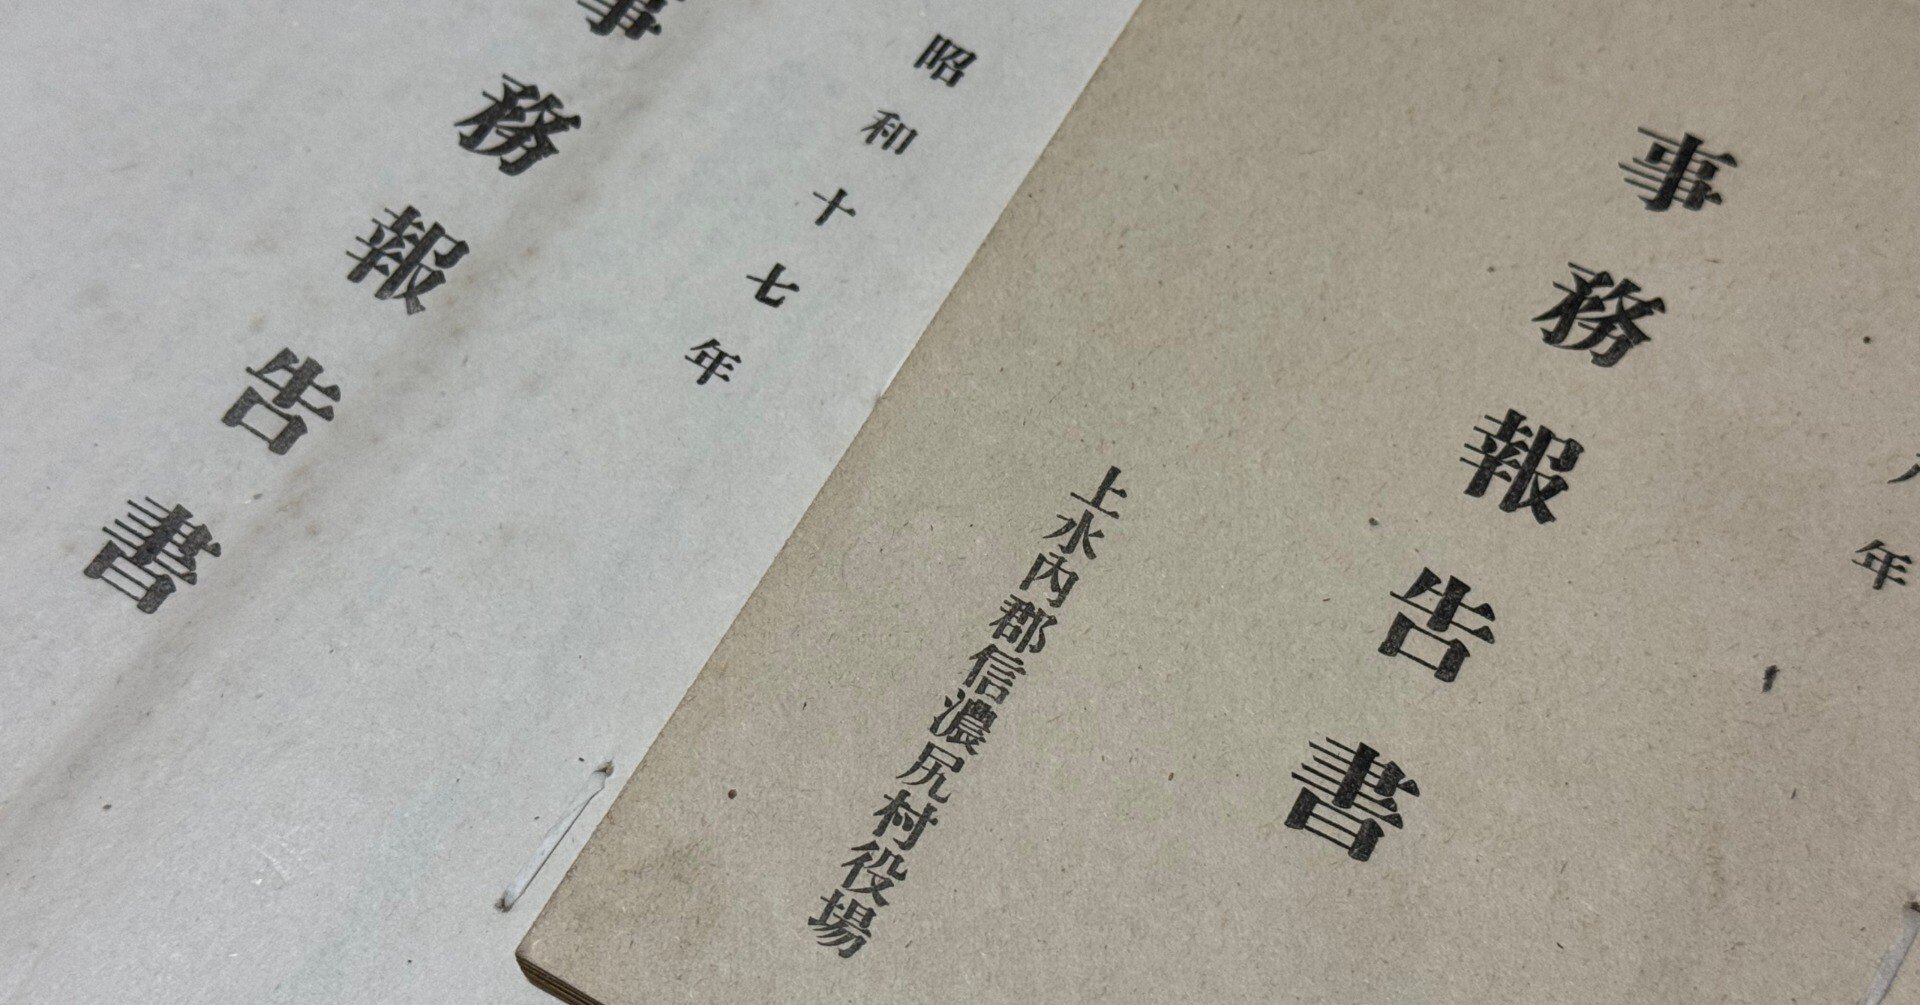 年
事務報告書
上水內郡信濃尻村役場
昭和十七年
事務報告書